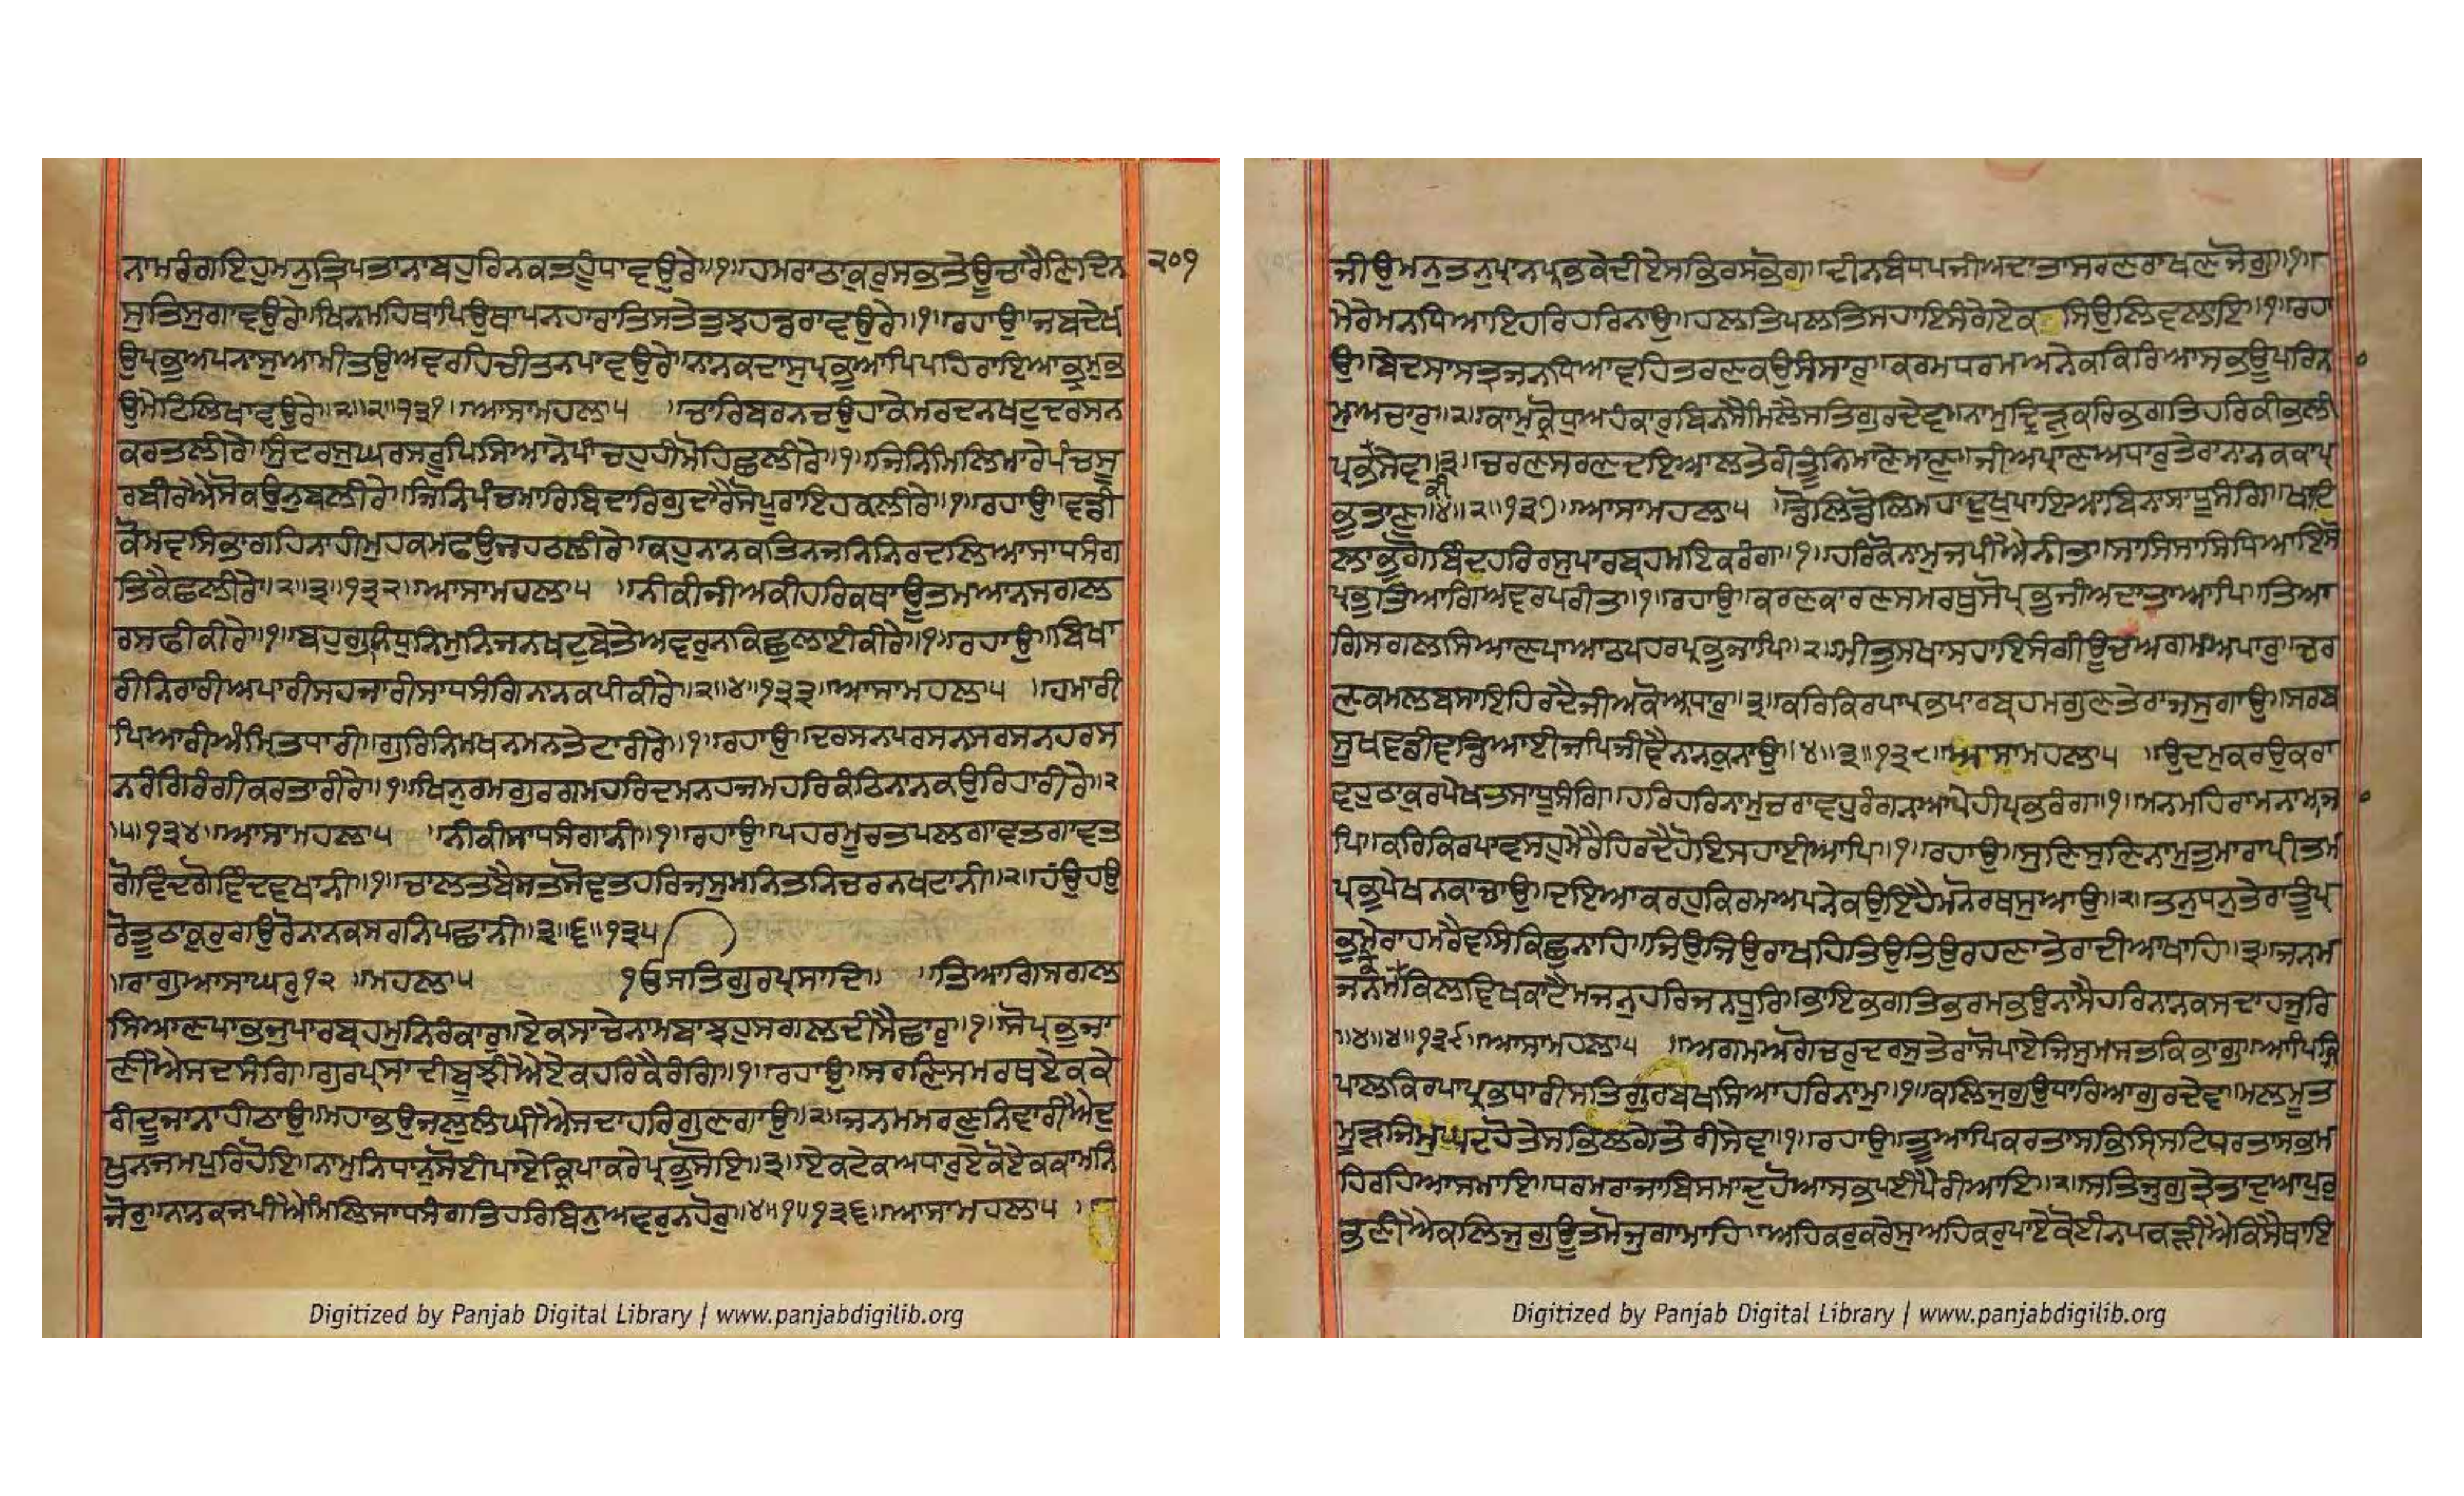 ਨਾਮਰੰਗਇਹੁਮਨੁਤ੍ਰਿਪਤਾਨਾਬਹੁਰਿਨਕਤਹੂੰਧਾਵਉਰੇ॥੧॥ਹਮਰਾਠਾਕੁਰੁਸਭਤੇਊਚਾਰੈਣਿਦਿਨ ੨੦੧
ਸੁਤਿਸੁਗਾਵਉਰੇ॥ਖਿਨਮਹਿਥਾਪਿਉਥਾਪਨਹਾਰਾਤਿਸਤੇਤੁਝਹਡਰਾਵਉਰੇ॥੧॥ਰਹਾਉ॥ਜਬਦੇਖ
ਉਪ੍ਰਭੁਅਪਨਾਸੁਆਮੀਤਉਅਵਰਹਿਚੀਤਨਪਾਵਉਰੇ॥ਨਾਨਕਦਾਸੁਪ੍ਰਭੂਆਪਿਪਹਿਰਾਇਆਭ੍ਰਮੁਭ
ਉਮੇਟਿਲਿਖਾਵਉਰੇ॥੨॥੨॥੧੩੧॥ਆਸਾਮਹਲਾ੫ ॥ਚਾਰਿਬਰਨਚਉਹਾਕੇਮਰਦਨਖਟੁਦਰਸਨ
ਕਰਤਲੀਰੇ॥ਸੁੰਦਰਸੁਘਰਸਰੂਪਿਸਿਆਨੇਪੰਚਹੁਹੀਮੋਹਿਛਲੀਰੇ॥੧॥ਜਿਨਿਮਿਲਿਮਾਰੇਪੰਚਸੂ
ਰਬੀਰੇਐਸੋਕਉਨੁਬਲੀਰੇ॥ਜਿਨਿਪੰਚਮਾਰਿਬਿਦਾਰਿਗੁਦਾਰੇਸੋਪੂਰਾਇਹਕਲੀਰੇ॥੧॥ਰਹਾਉ॥ਵਡੀ
ਕੋਮਵਸਿਭਾਗਹਿਨਾਹੀਮੁਹਕਮਫਉਜਹਠਲੀਰੇ॥ਕਹੁਨਾਨਕਤਿਨਜਨਿਨਿਰਦਲਿਆਸਾਧਸੰਗ
ਤਿਕੈਛਲੀਰੇ॥੨॥੩॥੧੩੨॥ਆਸਾਮਹਲਾ੫ ॥ਨੀਕੀਜੀਅਕੀਹਰਿਕਥਾਊਤਮਆਨਸਗਲ
ਰਸਫੀਕੀਰੇ॥੧॥ਬਹੁਗੁਨਿਧੁਨਿਮੁਨਿਜਨਖਟੁਬੇਤੇਅਵਰੁਨਕਿਛੁਲਾਈਕੀਰੇ॥੧॥ਰਹਾਉ॥ਬਿਖਾ
ਰੀਨਿਰਾਰੀਅਪਾਰੀਸਹਜਾਰੀਸਾਧਸੰਗਿਨਾਨਕਪੀਕੀਰੇ॥੨॥੪॥੧੩੩॥ਆਸਾਮਹਲਾ੫ ॥ਹਮਾਰੀ
ਪਿਆਰੀਅੰਮ੍ਰਿਤਧਾਰੀ॥ਗੁਰਿਨਿਮਖਨਮਨਤੇਟਾਰੀਰੇ॥੧॥ਰਹਾਉ॥ਦਰਸਨਪਰਸਨਸਰਸਨਹਰਸ
ਨਰੰਗਿਰੰਗੀਕਰਤਾਰੀਰੇ॥੧॥ਖਿਨੁਰਮਗੁਰਗਮਹਰਿਦਮਨਹਜਮਹਰਿਕੰਠਿਨਾਨਕਉਰਿਹਾਰੀਰੇ॥੨
॥੫॥੧੩੪॥ਆਸਾਮਹਲਾ੫ ॥ਨੀਕੀਸਾਧਸੰਗਾਨੀ॥੧॥ਰਹਾਉ॥ਪਹਰਮੂਰਤਪਲਗਾਵਤਗਾਵਤ
ਗੋਵਿੰਦਗੋਵਿੰਦਵਖਾਨੀ॥੧॥ਚਾਲਤਬੈਸਤਸੋਵਤਹਰਿਜਸੁਮਨਿਤਨਿਚਰਨਖਟਾਨੀ॥੨॥ਹਂਉਹਉ
ਰੋਤੂਠਾਕੁਰੁਗਉਰੋਨਾਨਕਸਰਨਿਪਛਾਨੀ॥੩॥੬॥੧੩੫
॥ਰਾਗੁਆਸਾਘਰੁ੧੨ ॥ਮਹਲਾ੫ ੴਸਤਿਗੁਰਪ੍ਰਸਾਦਿ॥ ॥ਤਿਆਗਿਸਗਲ
ਸਿਆਣਪਾਭਜੁਪਾਰਬ੍ਰਹਮੁਨਿਰੰਕਾਰੁ॥ਏਕਸਾਚੇਨਾਮਬਾਝਹੁਸਗਲਦੀਸੈਛਾਰੁ॥੧॥ਸੋਪ੍ਰਭੁਜਾ
ਣੀਐਸਦਸੰਗਿ॥ਗੁਰਪ੍ਰਸਾਦੀਬੂਝੀਐਏਕਹਰਿਕੈਰੰਗਿ॥੧॥ਰਹਾਉ॥ਸਰਣਿਸਮਰਥਏਕਕੇ
ਰੀਦੂਜਾਨਾਹੀਠਾਉ॥ਮਹਾਭਉਜਲੁਲੰਘੀਐਸਦਾਹਰਿਗੁਣਗਾਉ॥੨॥ਜਨਮਮਰਣੁਨਿਵਾਰੀਐਦੁ
ਖੁਨਜਮਪੁਰਿਹੋਇ॥ਨਾਮੁਨਿਧਾਨੁਸੋਈਪਾਏਕ੍ਰਿਪਾਕਰੇਪ੍ਰਭੁਸੋਇ॥੩॥ਏਕਟੇਕਅਧਾਰੁਏਕੋਏਕਕਾਮਨਿ
ਜੋਰੁ॥ਨਾਨਕਜਪੀਐਮਿਲਿਸਾਧਸੰਗਤਿਹਰਿਬਿਨੁਅਵਰੁਨਹੋਰੁ॥੪॥੧॥੧੩੬॥ਆਸਾਮਹਲਾ੫ ॥
Digitized by Panjab Digital Library | www.panjabdigilib.org
ਜੀਉਮਨੁਤਨੁਪ੍ਰਾਨਪ੍ਰਭਕੇਦੀਏਸਭਿਰਸਭੋਗ॥ਦੀਨਬੰਧਪਜੀਅਦਾਤਾਸਰਣਰਾਖਣਜੋਗੁ॥੧॥
ਮੇਰੇਮਨਧਿਆਇਹਰਿਹਰਿਨਾਉ॥ਹਲਤਿਪਲਤਿਸਹਾਇਸੰਗੇਏਕ ਸਿਉਲਿਵਲਾਇ॥੧॥ਰਹਾ
ਉ॥ਬੇਦਸਾਸਤ੍ਰਜਨਧਿਆਵਹਿਤਰਣਕਉਸੰਸਾਰੁ॥ਕਰਮਧਰਮਅਨੇਕਕਿਰਿਆਸਭਊਪਰਿਨ
ਮੁਅਚਾਰੁ॥੨॥ਕਾਮੁਕ੍ਰੋਧੁਅਹੰਕਾਰੁਬਿਨਸੈਮਿਲੈਸਤਿਗੁਰਦੇਵ॥ਨਾਮੁਦ੍ਰਿੜੁਕਰਿਭਗਤਿਹਰਿਕੀਭਲੀ
ਪ੍ਰਭਸੇਵ॥੩॥ਚਰਣਸਰਣਦਇਆਲਤੇਰੀਤੂੰਨਿਮਾਣੇਮਾਣੁ॥ਜੀਅਪ੍ਰਾਣਅਧਾਰੁਤੇਰਾਨਾਨਕਕਾਪ੍ਰ
ਭੁਤਾਣੁ॥੪॥੨॥੧੩੭॥ਆਸਾਮਹਲਾ੫ ॥ਡੋਲਿਡੋਲਿਮਹਾਦੁਖੁਪਾਇਆਬਿਨਾਸਾਧੂਸੰਗਿ॥ਖਾਟਿ
ਲਾਭੁਗੋਬਿੰਦਹਰਿਰਸੁਪਾਰਬ੍ਰਹਮਇਕਰੰਗ॥੧॥ਹਰਿਕੋਨਾਮੁਜਪੀਐਨੀਤ॥ਸਾਸਿਸਾਸਿਧਿਆਇਸੋ
ਪ੍ਰਭੁਤਿਆਗਿਅਵਰਪਰੀਤ॥੧॥ਰਹਾਉ॥ਕਰਣਕਾਰਣਸਮਰਥੁਸੋਪ੍ਰਭੁਜੀਅਦਾਤਾਆਪਿ॥ਤਿਆ
ਗਿਸਗਲਸਿਆਣਪਾਆਠਪਹਰਪ੍ਰਭੁਜਾਪਿ॥੨॥ਮੀਤੁਸਖਾਸਹਾਇਸੰਗੀਊਚਅਗਮਅਪਾਰੁ॥ਚਰ
ਣਕਮਲਬਸਾਇਹਿਰਦੈਜੀਅਕੋਅਧਾਰੁ॥੩॥ਕਰਿਕਿਰਪਾਪ੍ਰਭਪਾਰਬ੍ਰਹਮਗੁਣਤੇਰਾਜਸੁਗਾਉ॥ਸਰਬ
ਸੂਖਵਡੀਵਡਿਆਈਜਪਿਜੀਵੈਨਾਨਕੁਨਾਉ॥੪॥੩॥੧੩੮॥ਆਸਾਮਹਲਾ੫ ॥ਉਦਮੁਕਰਉਕਰਾ
ਵਹੁਠਾਕੁਰਪੇਖਤਸਾਧੂਸੰਗਿ॥ਹਰਿਹਰਿਨਾਮੁਚਰਾਵਹੁਰੰਗਨਿਆਪੇਹੀਪ੍ਰਭਰੰਗਿ॥੧॥ਮਨਮਹਿਰਾਮਨਾਮਾਜਾ
ਪਿ॥ਕਰਿਕਿਰਪਾਵਸਹੁਮੇਰੈਹਿਰਦੈਹੋਇਸਹਾਈਆਪਿ॥੧॥ਰਹਾਉ॥ਸੁਣਿਸੁਣਿਨਾਮੁਤੁਮਾਰਾਪ੍ਰੀਤਮ
ਪ੍ਰਭੁਪੇਖਨਕਾਚਾਉ॥ਦਇਆਕਰਹੁਕਿਰਮਅਪਨੇਕਉਇਹੈਮਨੋਰਥੁਸੁਆਉ॥੨॥ਤਨੁਧਨੁਤੇਰਾਤੂੰਪ੍ਰ
ਭੁਮੇਰਾਹਮਰੈਵਸਿਕਿਛੁਨਾਹਿ॥ਜਿਉਜਿਉਰਾਖਹਿਤਿਉਤਿਉਰਹਣਾਤੇਰਾਦੀਆਖਾਹਿ॥੩॥ਜਨਮ
ਜਨਮਕੇਕਿਲਵਿਖਕਾਟੈਮਜਨੁਹਰਿਜਨਧੂਰਿ॥ਭਾਇਭਗਤਿਭਰਮਭਉਨਾਸੈਹਰਿਨਾਨਕਸਦਾਹਜੂਰਿ
॥੪॥੪॥੧੩੯॥ਆਸਾਮਹਲਾ੫ ॥ਅਗਮਅਗੋਚਰੁਦਰਸੁਤੇਰਾਸੋਪਾਏਜਿਸੁਮਸਤਕਿਭਾਗੁ॥ਆਪਿਕ੍ਰਿ
ਪਾਲਕਿਰਪਾਪ੍ਰਭਧਾਰੀਸਤਿਗੁਰਬਖਸਿਆਹਰਿਨਾਮੁ॥੧॥ਕਲਿਜੁਗੁਉਧਾਰਿਆਗੁਰਦੇਵ॥ਮਲਮੂਤ
ਮੂੜਜਿਮੁਘਦਹੋਤੇਸਭਿਲਗੇਤੇਰੀਸੇਵ॥੧॥ਰਹਾਉ॥ਤੂਆਪਿਕਰਤਾਸਭਸ੍ਰਿਸਟਿਧਰਤਾਸਭਮ
ਹਿਰਹਿਆਸਮਾਇ॥ਧਰਮਰਾਜਾਬਿਸਮਾਦੁਹੋਆਸਭਪਈਪੈਰੀਆਇ॥੨॥ਸਤਿਜੁਗੁਤ੍ਰੇਤਾਦੁਆਪੁਰੁ
ਭਣੀਐਕਲਿਜੁਗੁਊਤਮੋਜੁਗਾਮਾਹਿ॥ਅਹਿਕਰੁਕਰੇਸੁਅਹਿਕਰੁਪਾਏਕੋਈਨਪਕੜੀਐਕਿਸੈਥਾਇ
Digitized by Panjab Digital Library | www.panjabdigilib.org